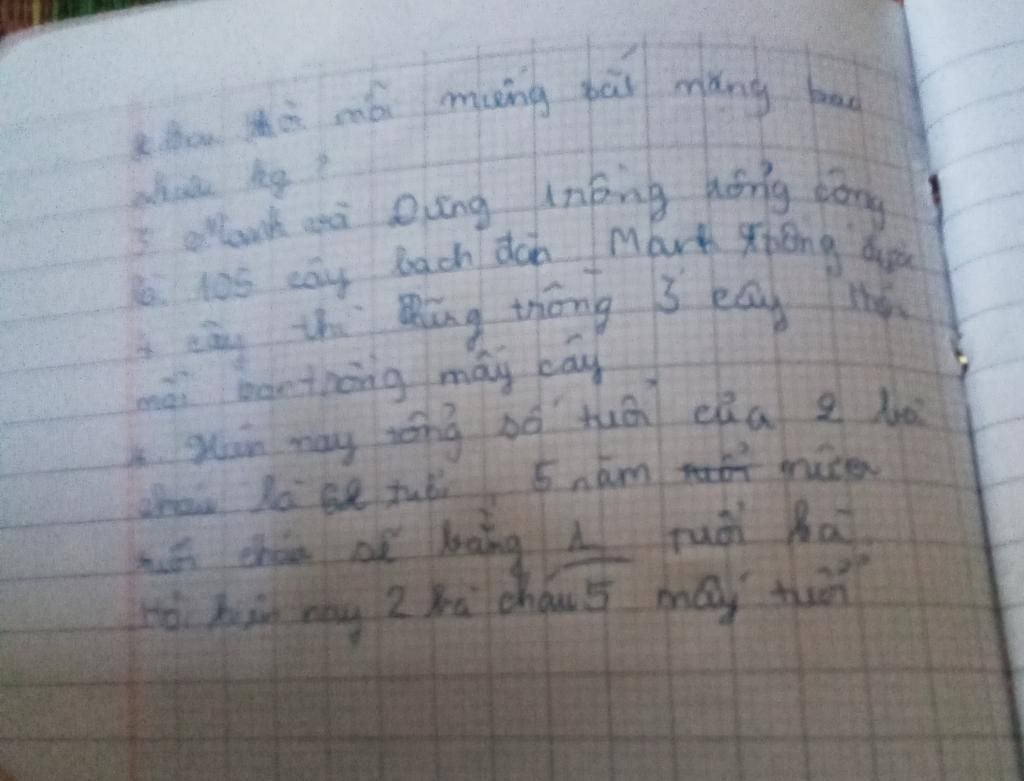 mỗi miếng bài măng bao
nhiêu kg ?
3 Manh và Dũng trồng hông công
là 105 cây bạch đàn Manh trồng được
4 cây thì Dũng trồng 3 cây thế
mỗi bạn trồng mấy cây
4 Hiện nay tổng số tuổi của 2 bà
cháu là tuổi , 5 năm nữa
tuổi cháu sẽ bằng 1/5 tuổi bà
Hỏi hiện nay 2 bà cháu mấy tuổi